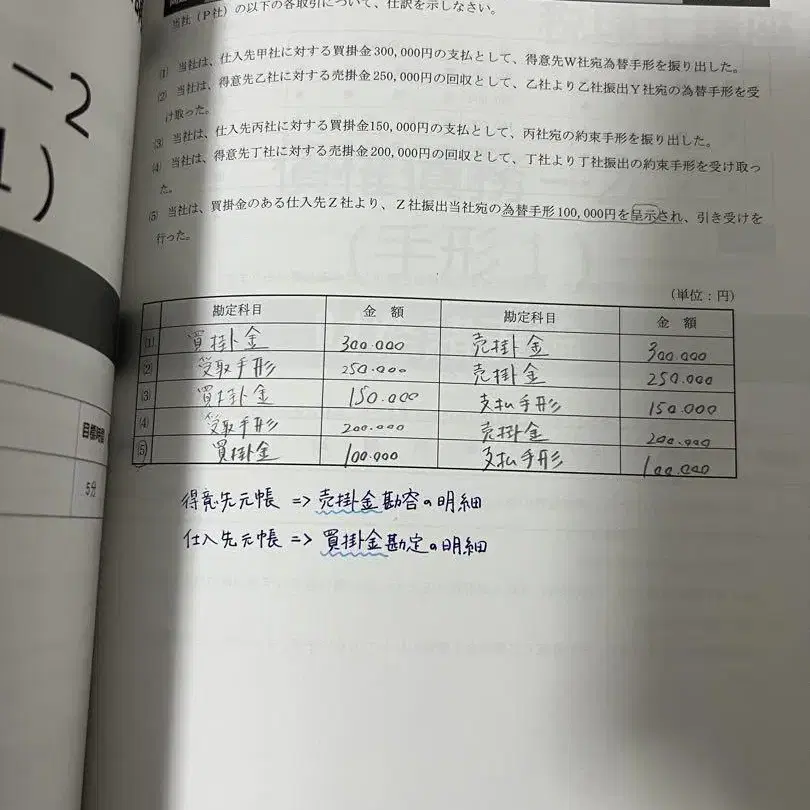 当社（P社）の以下の各取引について、仕訳を示しなさい。
⑴ 当社は、仕入先甲社に対する買掛金300,000円の支払として、得意先W社宛為替手形を振り出した。
⑵ 当社は、得意先乙社に対する売掛金250,000円の回収として、乙社より乙社振出Y社宛の為替手形を受
け取った。
⑶ 当社は、仕入先丙社に対する買掛金150,000円の支払として、丙社宛の約束手形を振り出した。
⑷ 当社は、得意先丁社に対する売掛金200,000円の回収として、丁社より丁社振出の約束手形を受け取っ
た。
⑸ 当社は、買掛金のある仕入先Z社より、Z社振出当社宛の為替手形100,000円を呈示され、引き受けを
行った。
（単位：円）
勘定科目 金額 勘定科目 金額
⑴ 買掛金 300.000 売掛金 300.000
⑵ 受取手形 250.000 売掛金 250.000
⑶ 買掛金 150.000 支払手形 150.000
⑷ 受取手形 200.000 売掛金 200.000
⑸ 買掛金 100.000 支払手形 100.000
得意先元帳 => 売掛金勘容の明細
仕入先元帳 => 買掛金勘定の明細
-2
1)
目標時間
5分